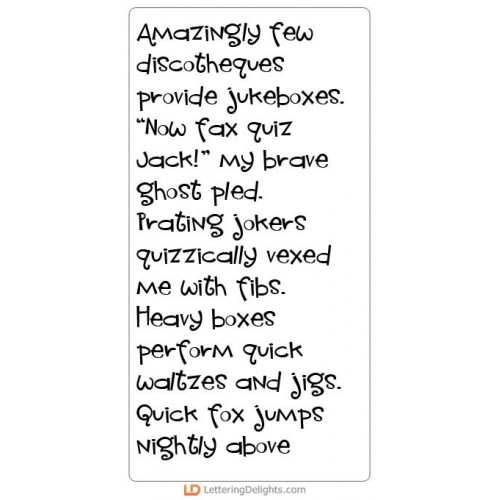 Amazingly few
discotheques
provide jukeboxes.
“Now fax quiz
Jack!” my brave
ghost pled.
Prating jokers
quizzically vexed
me with fibs.
Heavy boxes
perform quick
waltzes and jigs.
Quick fox jumps
nightly above
LD LetteringDelights.com